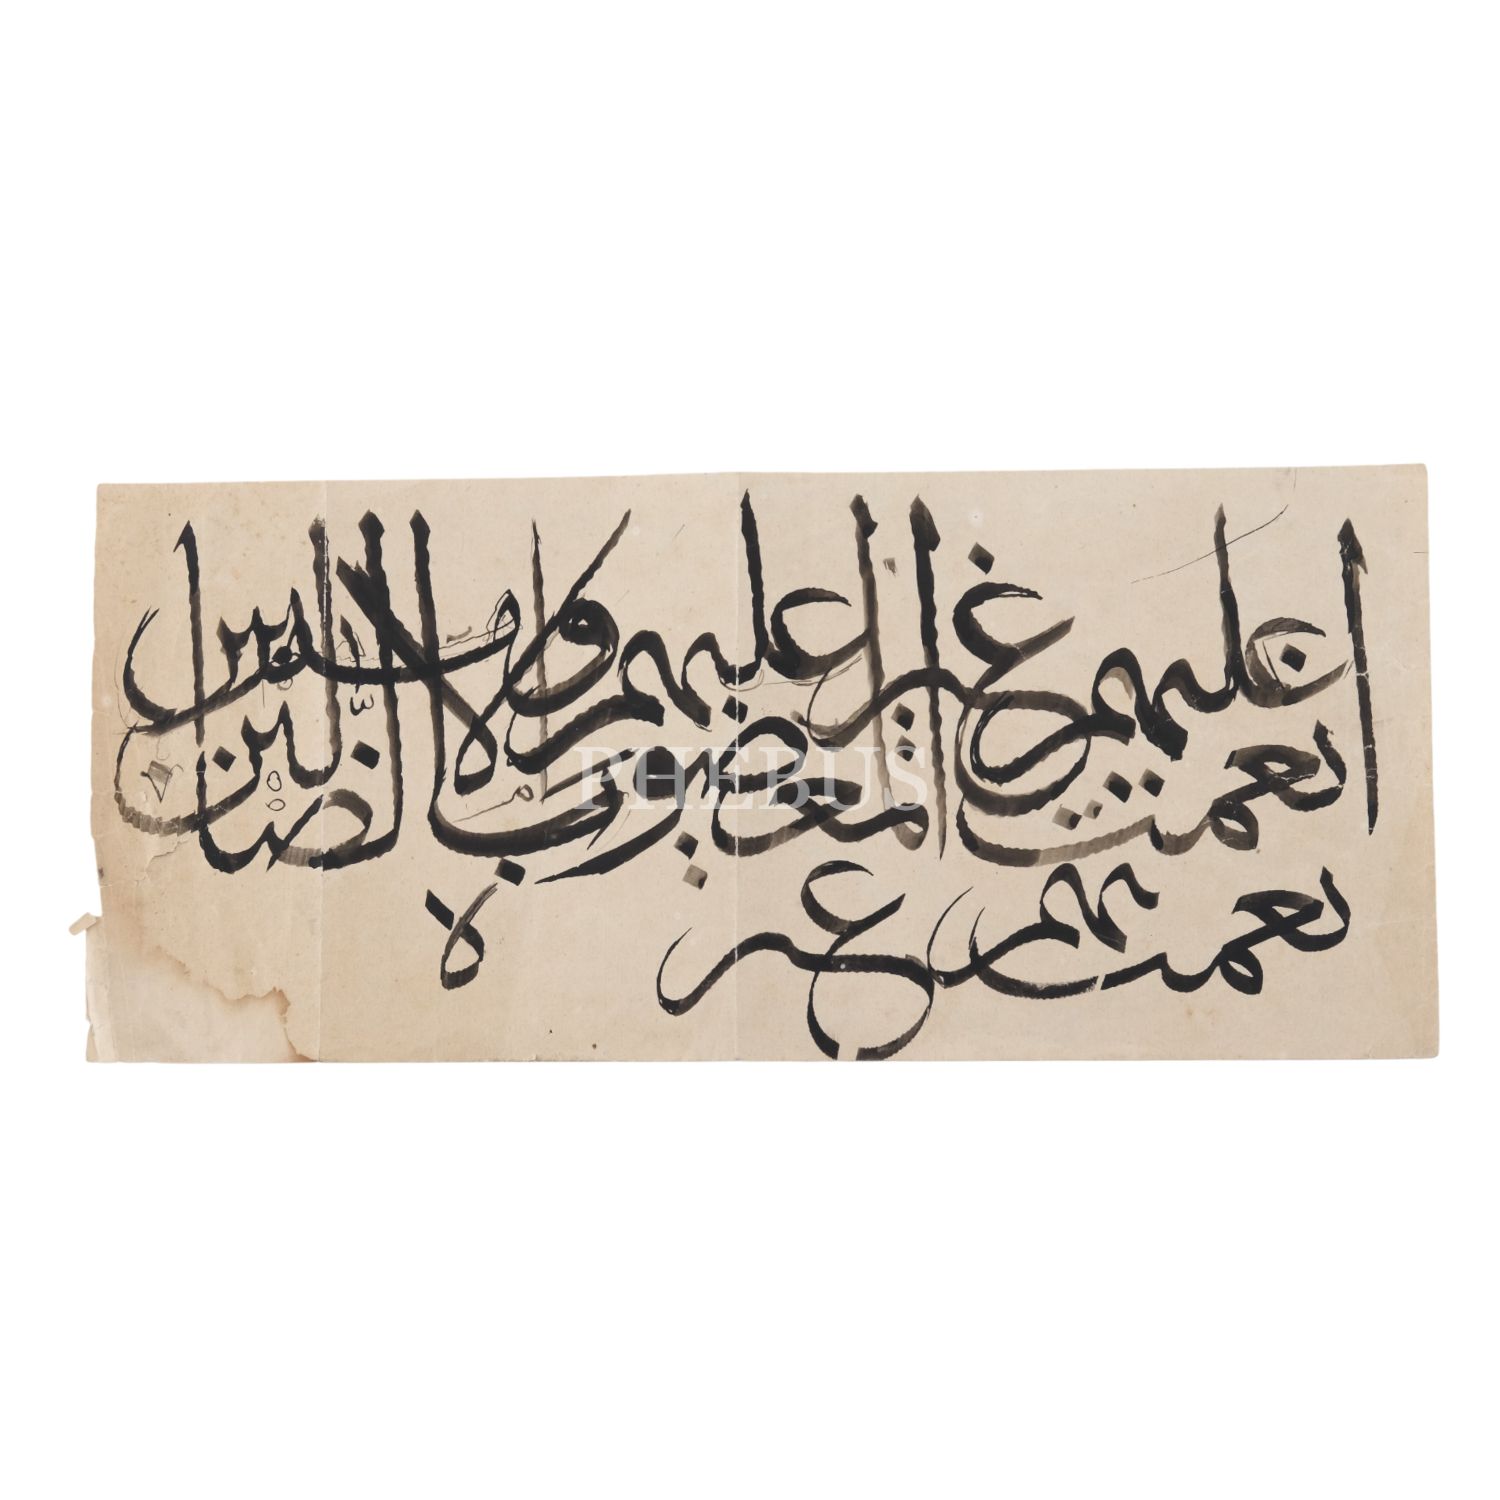 انعمت عليهم غير المغضوب عليهم ولا الضالين
نعمت هم غير لا
PHEBUS